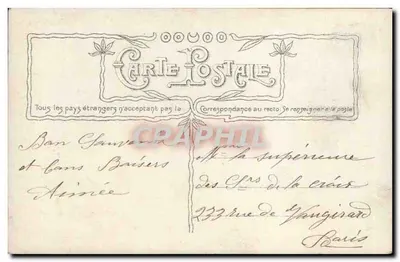 CARTE POSTALE
Tous les pays étrangers n'acceptant pas la Correspondance au recto. Se renseigner à la poste
CPAPHIL
Bon Souvenir
et bons Baisers
Aimée
Mme la supérieure
des de la croix
233 rue de Vaugirard
Paris